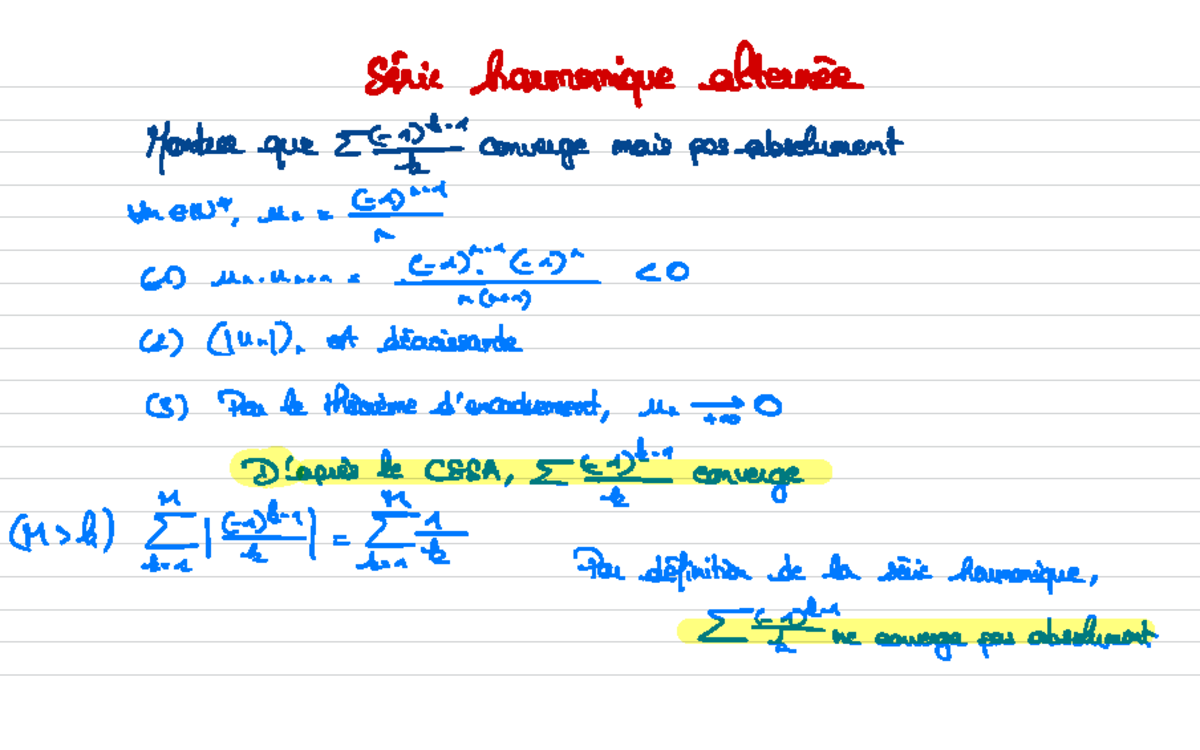 Série harmonique alternée
Montrer que Σ (-1)^{k-1}/k converge mais pas absolument
∀n ∈ ℕ*, u_n = (-1)^{n-1}/n
(1) u_n . u_{n+1} = (-1)^{n-1} . (-1)^n / n(n+1) < 0
(2) (|u_n|)_n est décroissante
(3) Par le théorème d'encadrement, u_n ⟶_{+∞} 0
D'après le CSSA, Σ (-1)^{k-1}/k converge
(M > k) Σ_{k=1}^{M} |(-1)^{k-1}/k| = Σ_{k=1}^{M} 1/k
Par définition de la série harmonique,
Σ (-1)^{k-1}/k ne converge pas absolument